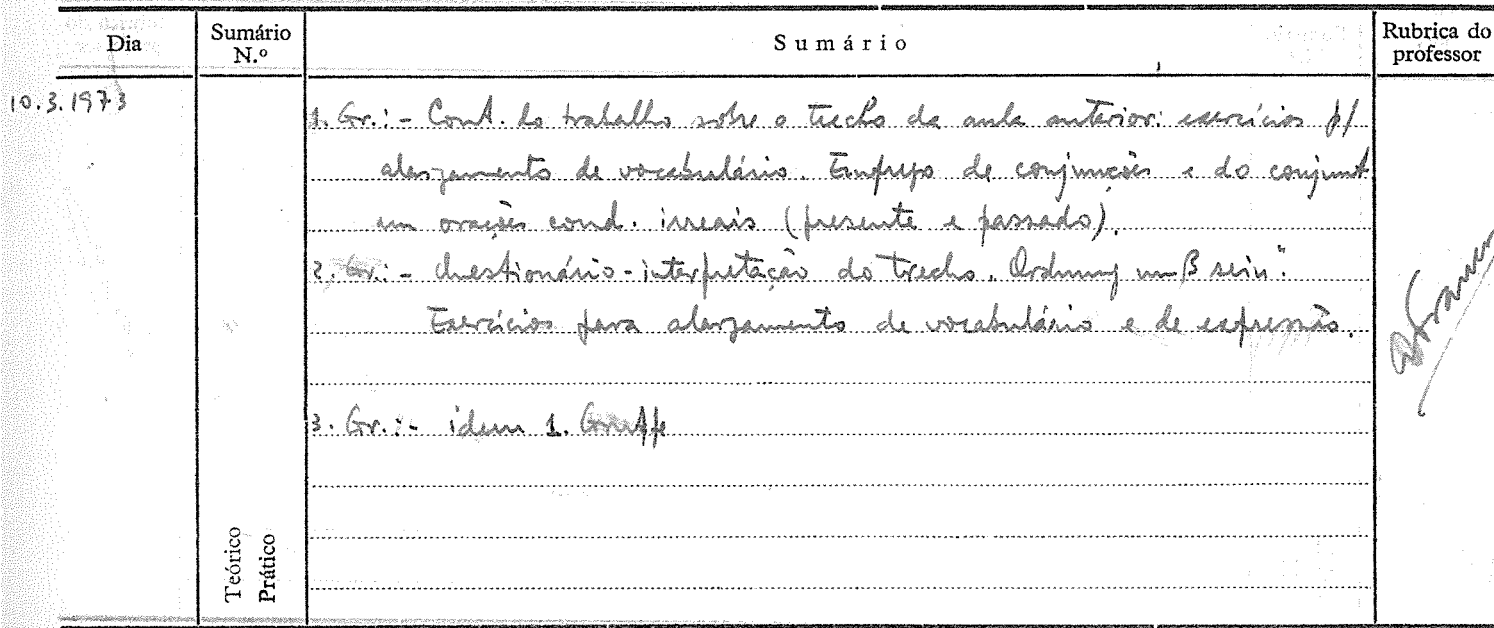 Dia
Sumário N.º
Sumário
Rubrica do professor
10.3.1973
1. Gr.: - Cont. do trabalho sobre o trecho da aula anterior: exercícios p/
alargamento de vocabulário. Emprego de conjunções e do conjunt
em orações cond. irreais (presente e passado).
2. Gr.: - Questionário-interpretação do trecho „Ordnung muß sein".
Exercícios para alargamento de vocabulário e de expressão.
3. Gr.: - idem 1. Gruppe
Teórico
Prático